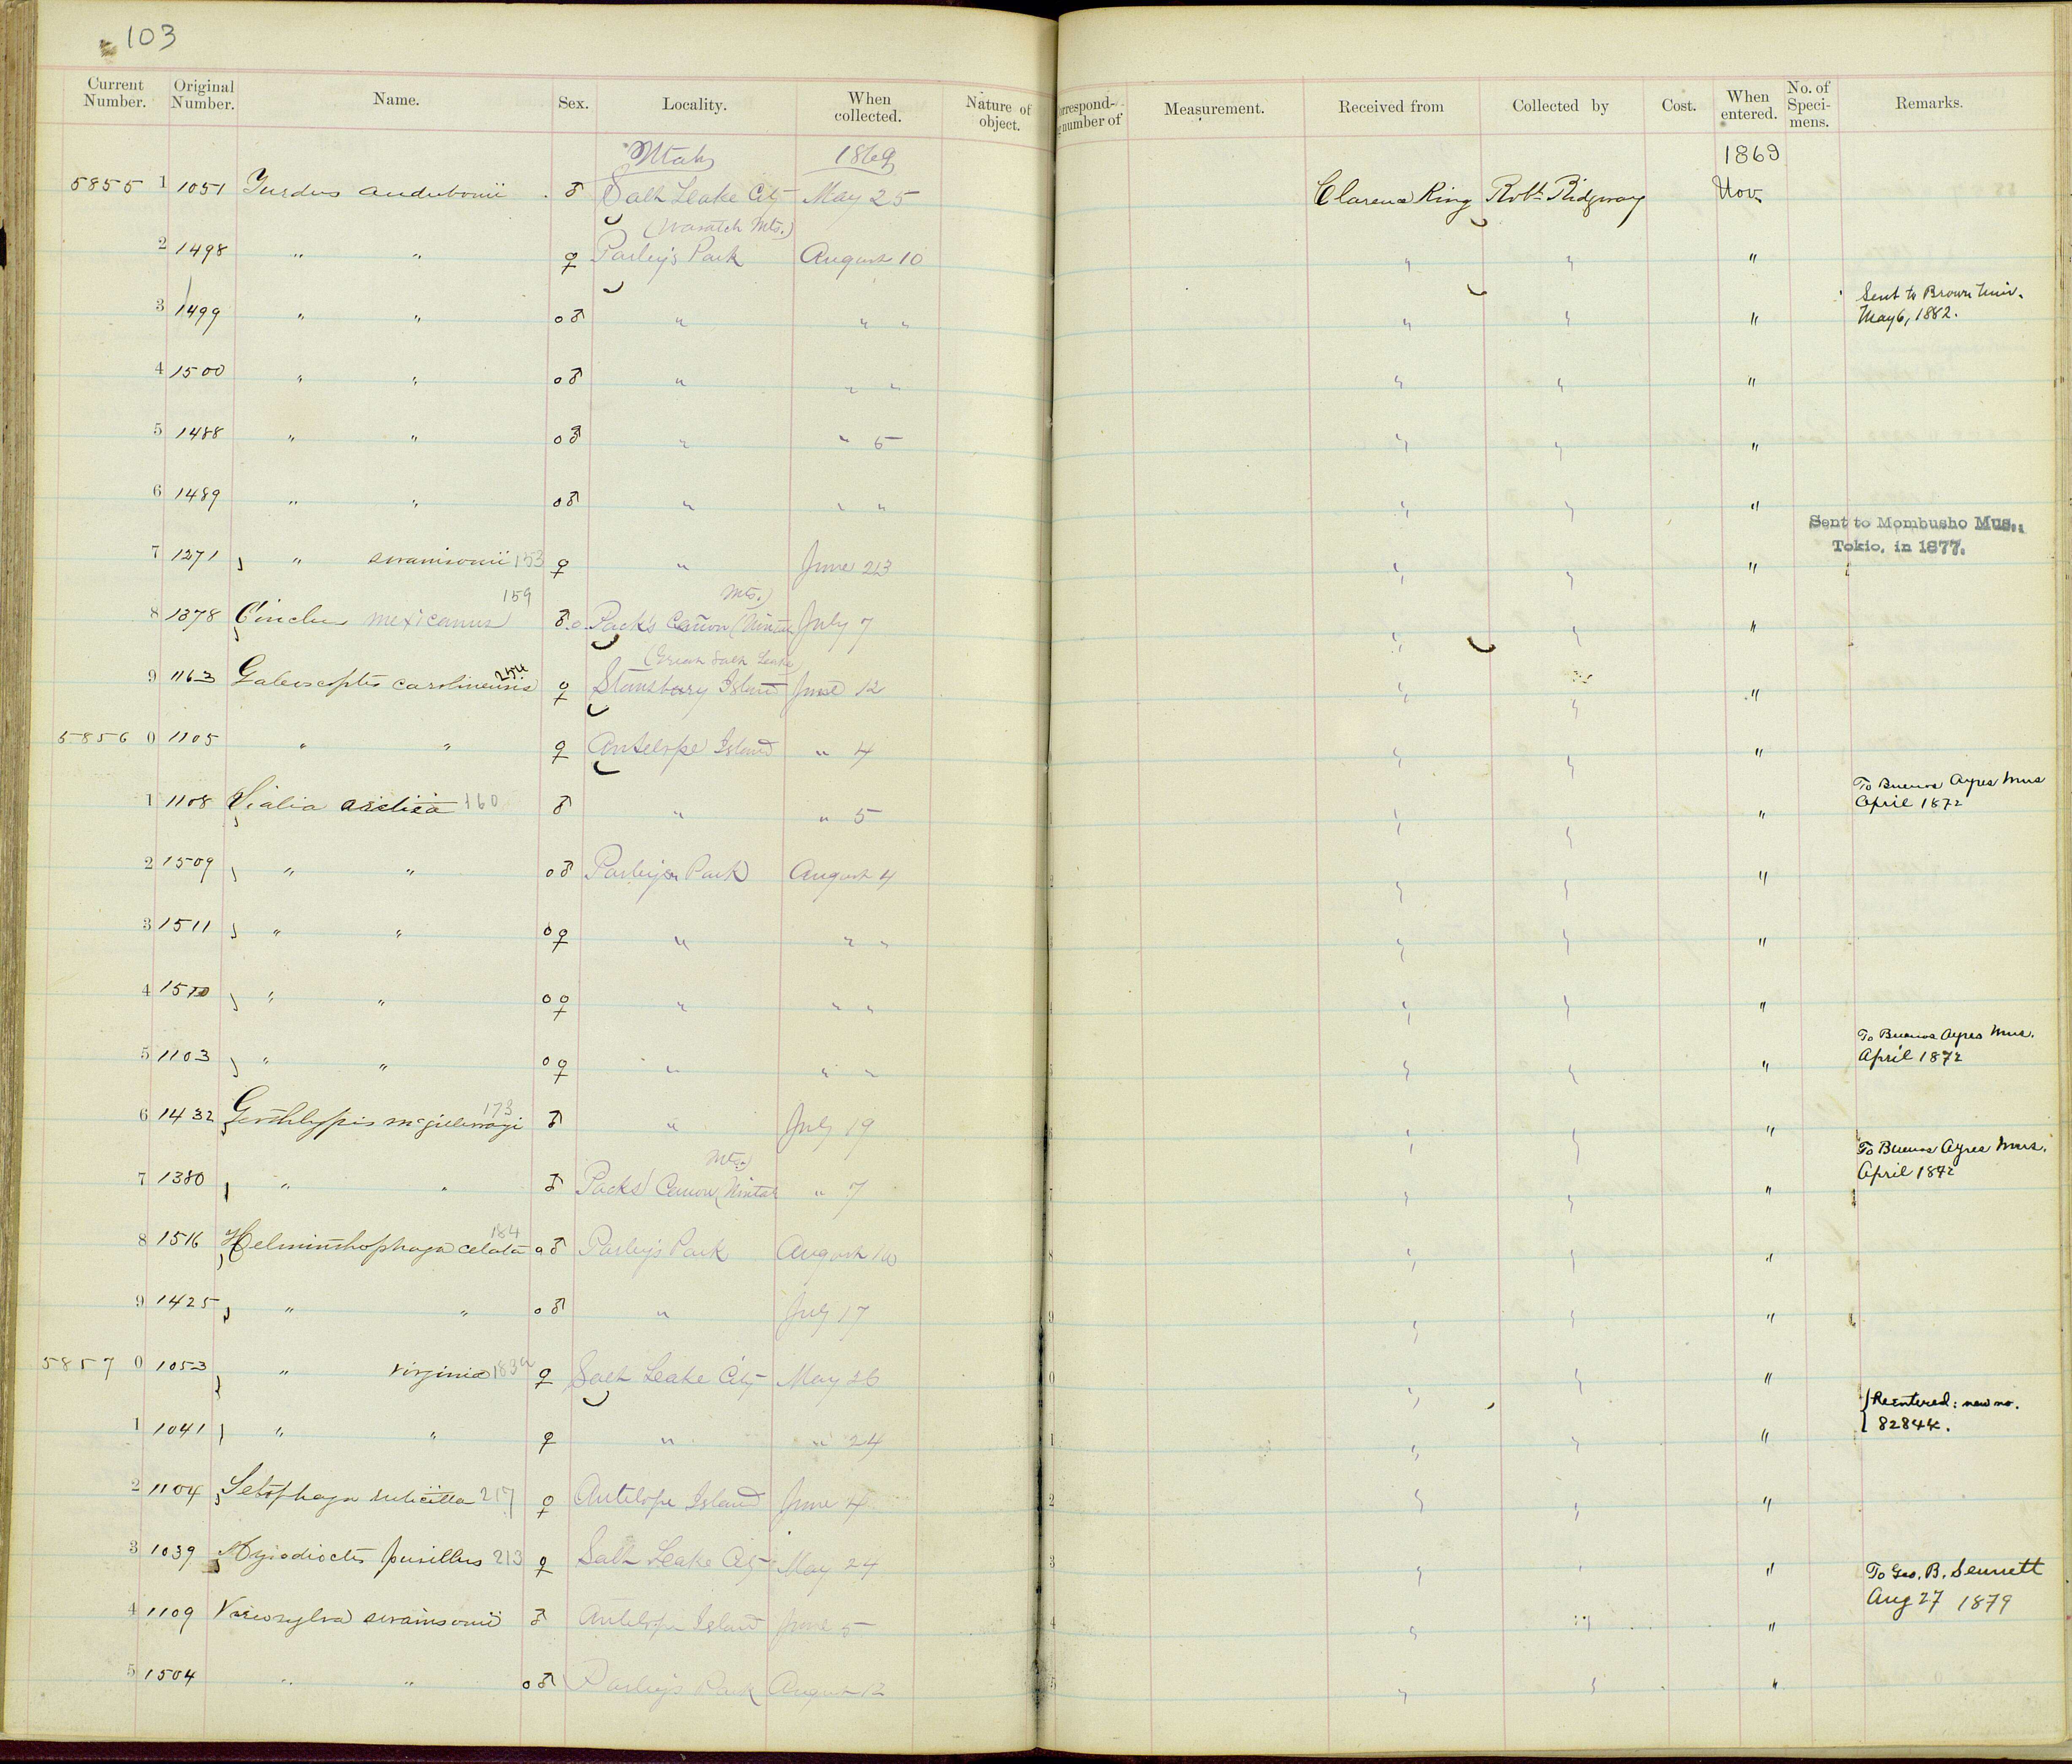 103
Current Number. Original Number. Name. Sex. Locality. When collected. Nature of object. orrespond- number of Measurement. Received from Collected by Cost. When entered. No. of Speci- mens. Remarks.
Utah 1869 1869
5855 1 1051 Turdus audubonii ♂ Salt Lake City May 25 Clarence King Robt Ridgway Nov.
(Wasatch Mts.)
2 1498 " " ♀ Parley's Park August 10 " " "
3 1499 " " o♂ " " " " " " Sent to Brown Univ. May 6, 1882.
4 1500 " " o♂ " " " " " "
5 1488 " " o♂ " " 5 " " "
6 1489 " " o♂ " " " " " "
Sent to Mombusho Mus., Tokio, in 1877.
7 1271 " swainsonii 153 ♀ " June 23 " " "
159 Mts.)
8 1378 Cinclus mexicanus ♂.o Pack's Cañon (Uintah July 7 " " "
254 (Great Salt Lake)
9 1163 Galeoscoptes carolinensis ♀ Stansbury Island June 12 " " "
5856 0 1105 " " ♀ Antelope Island " 4 " " "
1 1108 Sialia arctica 160 ♂ " " 5 " " " To Buenos Ayres Mus April 1872
2 1509 " " o♂ Parley's Park August 4 " " "
3 1511 " " o♀ " " " " " "
4 1510 " " o♀ " " " " " "
5 1103 " " o♀ " " " " " " To Buenos Ayres Mus. April 1872
173
6 1432 Geothlypis macgillivrayi ♂ " July 19 " " "
Mts.)
7 1380 " " ♂ Packs Cañon (Uintah " 7 " " " To Buenos Ayres Mus. April 1872
184
8 1516 Helminthophaga celata o♂ Parley's Park August 10 " " "
9 1425 " " o♂ " July 17 " " "
5857 0 1053 " virginiae 183a ♀ Salt Lake City May 26 " " "
1 1041 " " ♀ " " 24 " " " Reentered: new no. 82844.
2 1104 Setophaga ruticilla 217 ♀ Antelope Island June 4 " " "
3 1039 Myiodioctes pusillus 213 ♀ Salt Lake City May 24 " " "
4 1109 Vireosylva swainsonii ♂ Antelope Island June 5 " " " To Geo. B. Sennett Aug 27 1879
5 1504 " " o♂ Parley's Park August 12 " " "